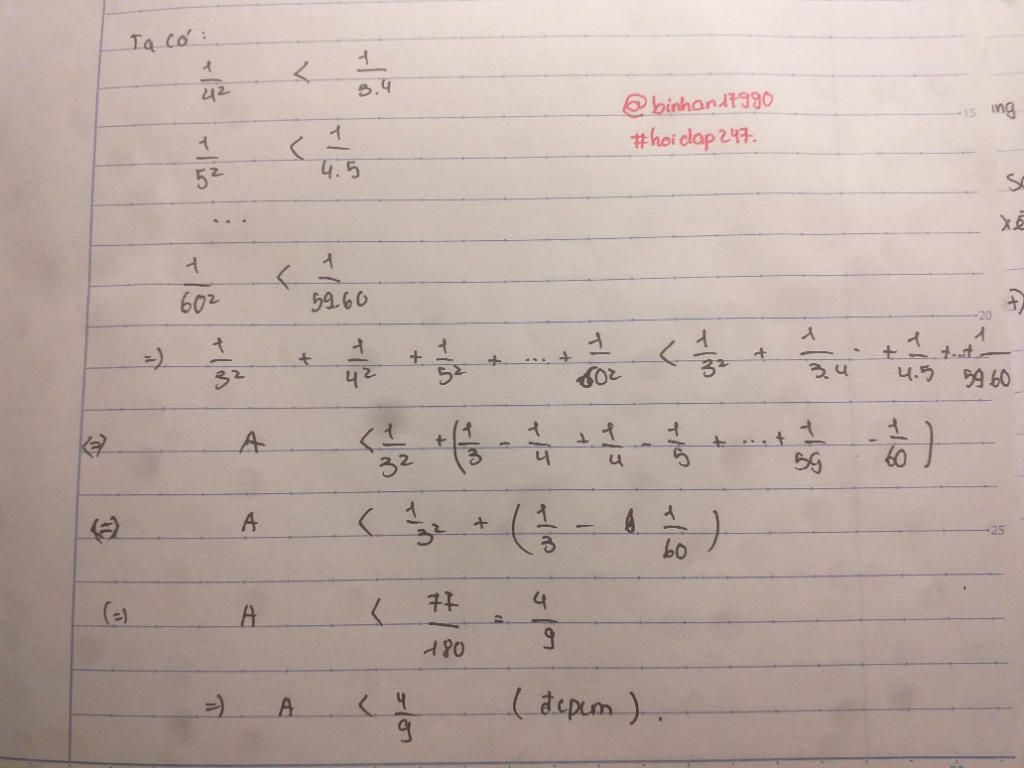 Ta có:
1/4² < 1/3.4
@binhan17990
#hoidap247.
1/5² < 1/4.5
...
1/60² < 1/59.60
=) 1/3² + 1/4² + 1/5² + ... + 1/60² < 1/3² + 1/3.4 + 1/4.5 + ... + 1/59.60
(=) A < 1/3² + (1/3 - 1/4 + 1/4 - 1/5 + ... + 1/59 - 1/60)
(=) A < 1/3² + (1/3 - 1/60)
(=) A < 77/180 = 4/9
=) A < 4/9 (đcpcm).
15
ing
xé
20
+)
25